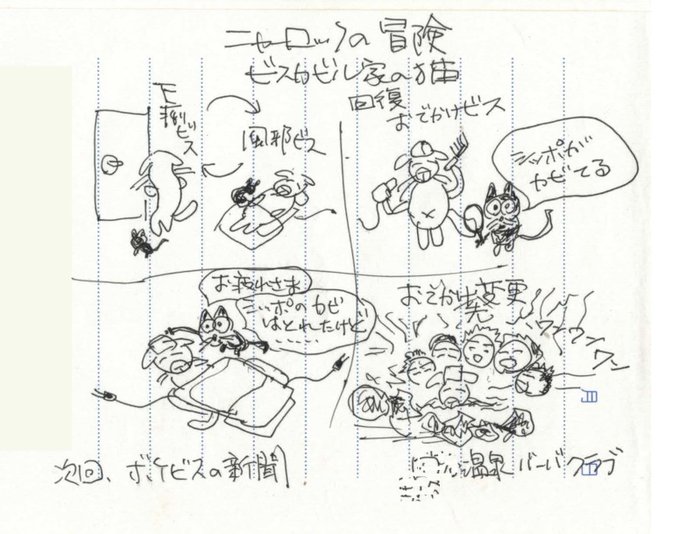 ニャーロックの冒険
ビスカビル家の猫
下痢ビス
風邪ビス
回復
おでかけビス
シッポが
カビてる
お疲れさま
シッポのカビ
はとれたけど
……
おでかけ変更
ワンワンワン
次回、ボケビスの新聞
温泉バーバクラブ